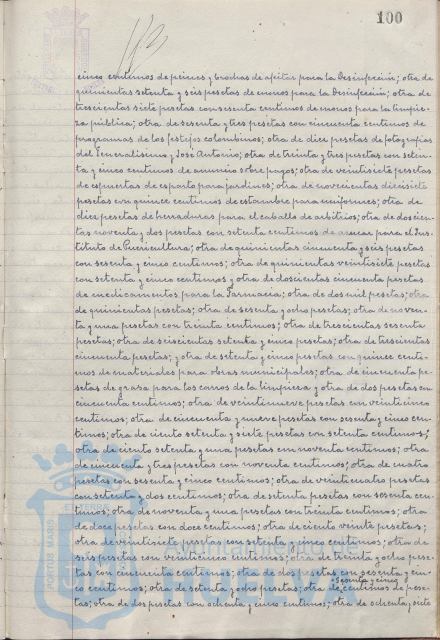 100
cinco centimos de peines y brochas de afeitar para la Desinfección; otra de
quinientas setenta y seis pesetas de monos para la Desinfección; otra de
trescientas siete pesetas con sesenta centimos de monos para la limpie-
za pública; otra de sesenta y tres pesetas con cincuenta centimos de
programas de los festejos colombinos; otra de diez pesetas de fotografias
del Generalisimo y José Antonio; otra de treinta y tres pesetas con seten-
ta y cinco centimos de anuncio sobre pagos; otra de veintisiete pesetas
de espuertas de esparto para jardines; otra de novecientas diecisiete
pesetas con quince centimos de estambre para uniformes; otra de
diez pesetas de herraduras para el caballo de arbitrios; otra de doscien-
tas noventa y dos pesetas con setenta centimos de azucar para el Ins-
tituto de Puericultura; otra de quinientas cincuenta y seis pesetas
con sesenta y cinco centimos; otra de quinientas veintisiete pesetas
con setenta y cinco centimos y otra de doscientas cincuenta pesetas
de medicamentos para la Farmacia; otra de dos mil pesetas; otra
de quinientas pesetas; otra de sesenta y ocho pesetas; otra de noven-
ta y una pesetas con treinta centimos; otra de trescientas sesenta
pesetas; otra de seiscientas setenta y cinco pesetas; otra de trescientas
cincuenta pesetas; y otra de setenta y cinco pesetas con quince centi-
mos de materiales para obras municipales; otra de cincuenta pe-
setas de grasa para los carros de la limpieza y otra de dos pesetas con
cincuenta centimos; otra de veintinueve pesetas con veinticinco
centimos; otra de cincuenta y nueve pesetas con sesenta y cinco cen-
timos; otra de ciento setenta y siete pesetas con setenta centimos;
otra de ciento setenta y una pesetas con noventa centimos; otra
de cincuenta y tres pesetas con noventa centimos; otra de cuatro
pesetas con sesenta y cinco centimos; otra de veinticuatro pesetas
con setenta y dos centimos; otra de setenta pesetas con sesenta cen-
timos; otra de noventa y una pesetas con treinta centimos; otra
de doce pesetas con doce centimos; otra de ciento veinte pesetas;
otra de veintisiete pesetas con setenta y cinco centimos; otra de
seis pesetas con veinticinco centimos; otra de treinta y ocho pese-
tas con cincuenta centimos; otra de dos pesetas con sesenta y cin-
co centimos; otra de setenta y ocho pesetas; otra de sesenta y cinco centimos de pese-
tas; otra de dos pesetas con ochenta y cinco centimos; otra de ochenta y siete
PORTUS MARIS